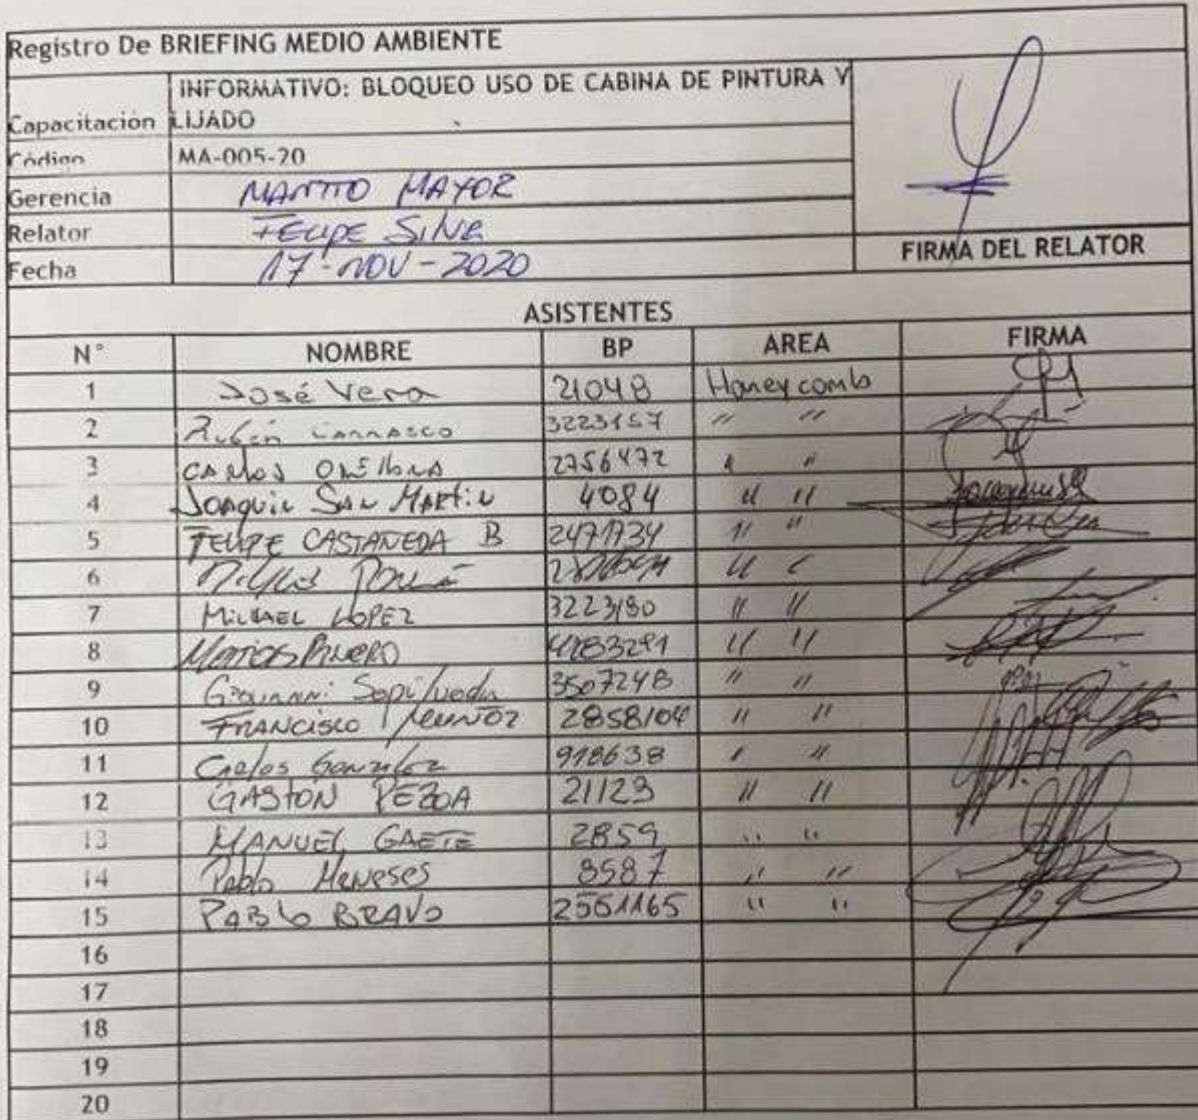 Registro De BRIEFING MEDIO AMBIENTE
INFORMATIVO: BLOQUEO USO DE CABINA DE PINTURA Y
Capacitación LIJADO
Código MA-005-20
Gerencia MANTTO MAYOR
Relator FELIPE SILVA
Fecha 17-NOV-2020
FIRMA DEL RELATOR
ASISTENTES
N° NOMBRE BP AREA FIRMA
1 José Vera 21048 Honeycomb
2 Rubén CARRASCO 3223157 " "
3 CARLOS ORELLANA 2756472 " "
4 JOAQUIN SAN MARTIN 4084 " "
5 FELIPE CASTANEDA B 2471734 " "
6 " "
7 MICHAEL LOPEZ 3223180 " "
8 Matias PIÑERO " "
9 Giovanni Sepulveda 3507248 " "
10 FRANCISCO MUÑOZ 2858104 " "
11 Carlos González 918638 " "
12 GASTON PEZOA 21123 " "
13 MANUEL GAETE 2859 " "
14 Pablo Meneses 8587 " "
15 PABLO BRAVO 2551165 " "
16
17
18
19
20